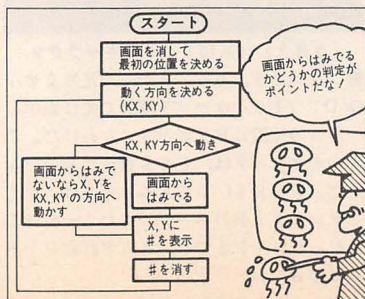 スタート
画面を消して
最初の位置を決める
動く方向を決める
(KX, KY)
KX, KY方向へ動き
画面からはみで
ないならX, Yを
KX, KY の方向へ
動かす
画面から
はみでる
X, Yに
#を表示
#を消す
画面からはみでる
かどうかの判定が
ポイントだな!